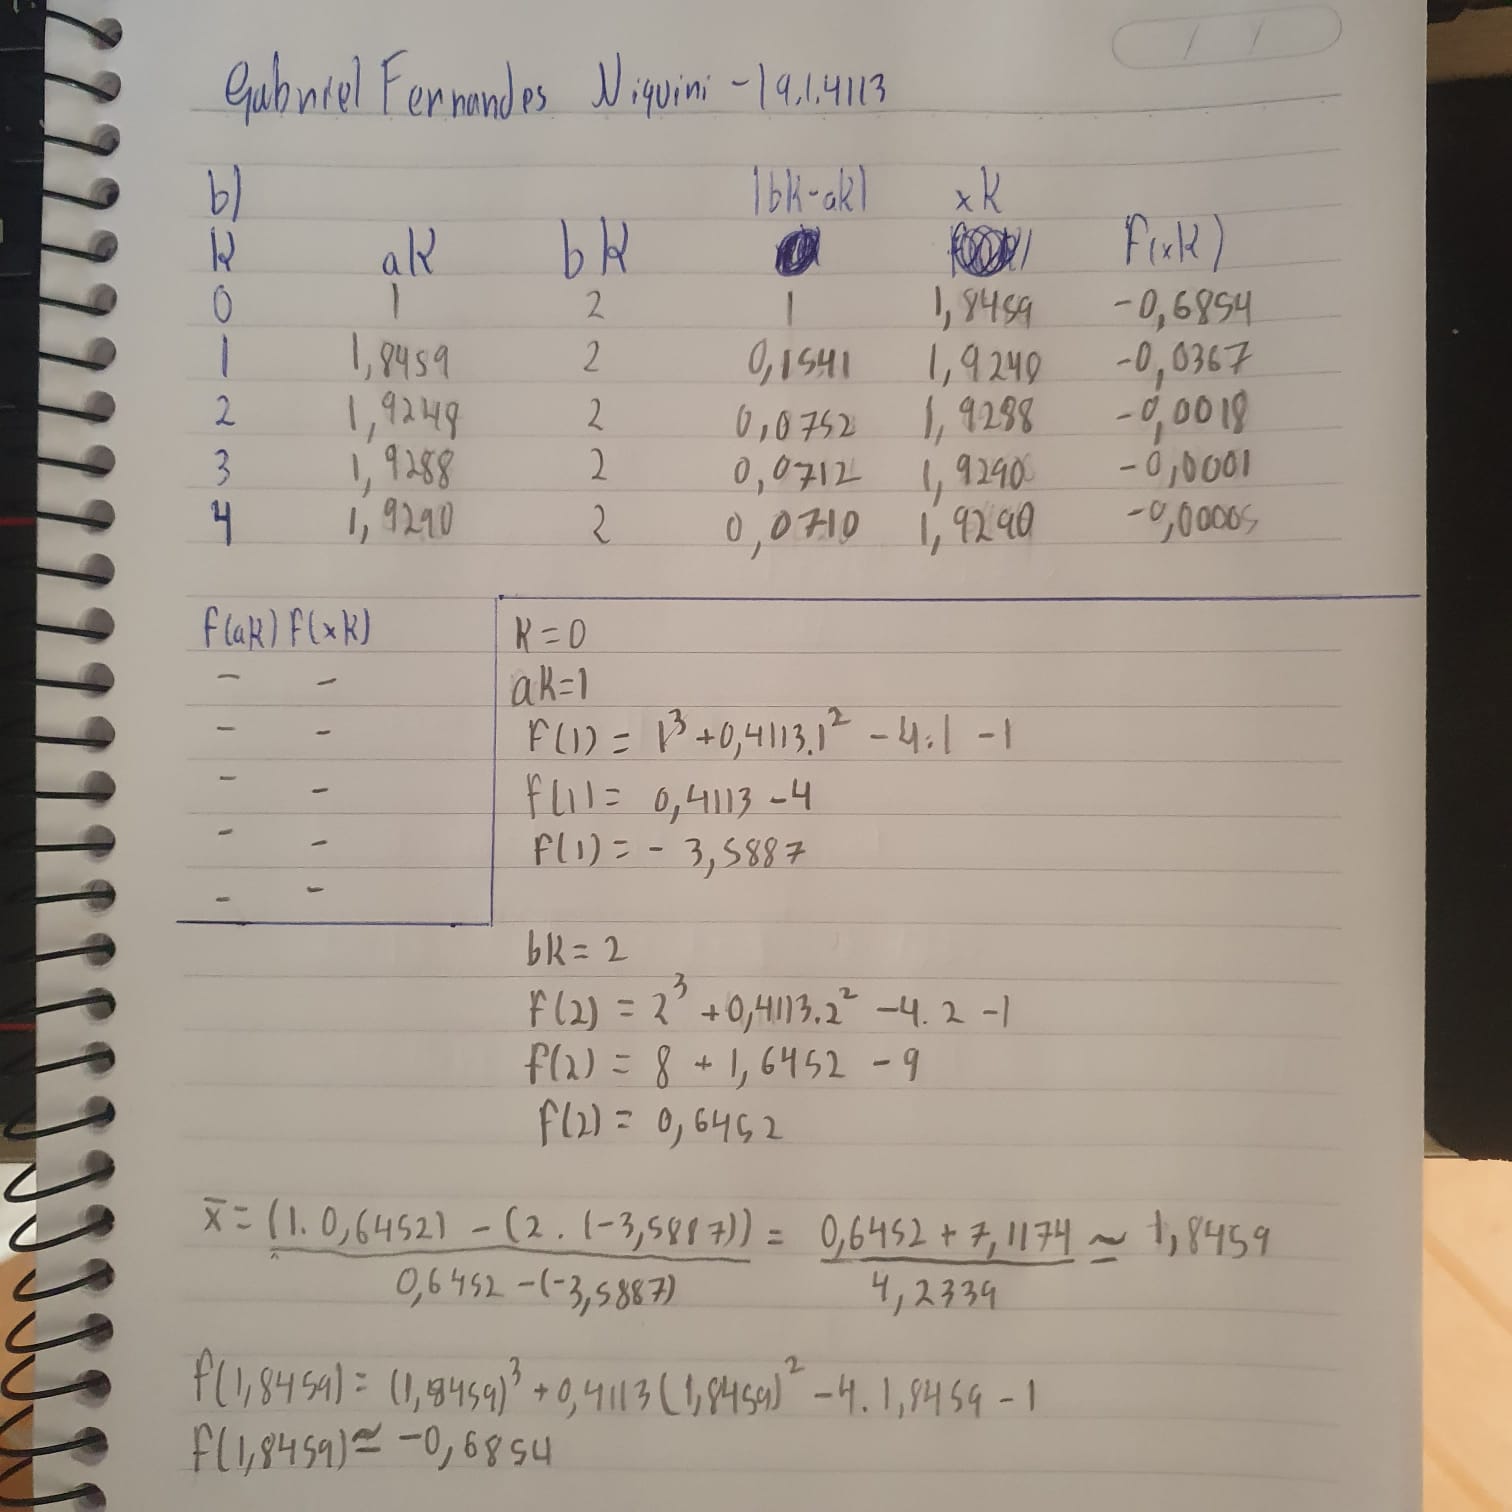 Gabriel Fernandes Niquini - 19.1.4113
b) |bk-ak| xk
k ak bk F(xk)
0 1 2 1 1,8459 -0,6854
1 1,8459 2 0,1541 1,9240 -0,0367
2 1,9248 2 0,0752 1,9288 -0,0018
3 1,9288 2 0,0712 1,9290 -0,0001
4 1,9290 2 0,0710 1,9290 -0,00005
f(ak) f(xk)
- -
- -
- -
- -
- -
K=0
ak=1
F(1) = 1³ +0,4113.1² - 4.1 - 1
f(1) = 0,4113 - 4
F(1) = - 3,5887
bk = 2
F(2) = 2³ +0,4113.2² -4. 2 -1
f(2) = 8 + 1,6452 - 9
f(2) = 0,6452
x̄ = (1. 0,6452) - (2 . (-3,5887)) = 0,6452 + 7,1174 ≃ 1,8459
0,6452 -(-3,5887) 4,2339
f(1,8459) = (1,8459)³ + 0,4113(1,8459)² - 4. 1,8459 - 1
f(1,8459) ≃ -0,6854